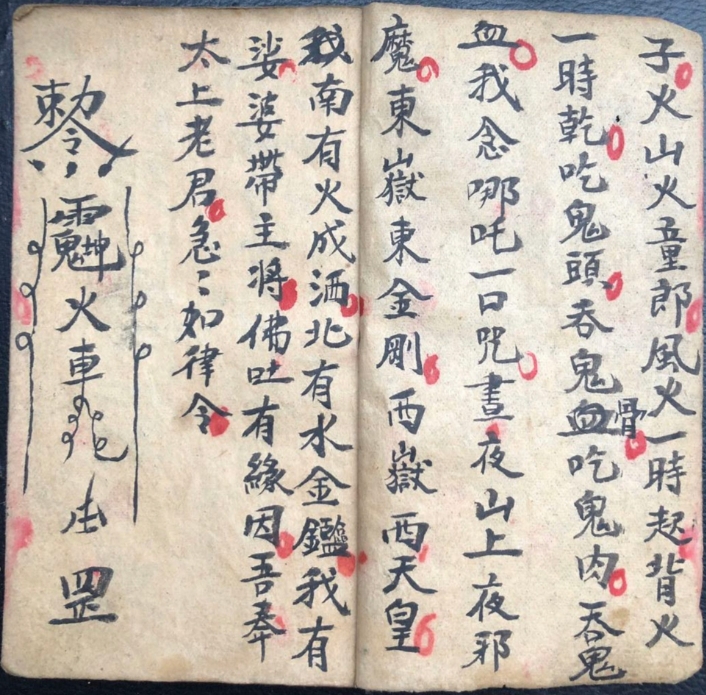 子火山火童郎風火一時起背火
一時乾吃鬼頭吞鬼血骨吃鬼肉吞鬼
血我念哪吒一口咒晝夜山上夜邪
魔東嶽東金剛西嶽西天皇
我南有火成洒北有水金鑑我有
娑婆帶主將佛吐有緣因吾奉
太上老君急〻如律令
勅令
火車
罡